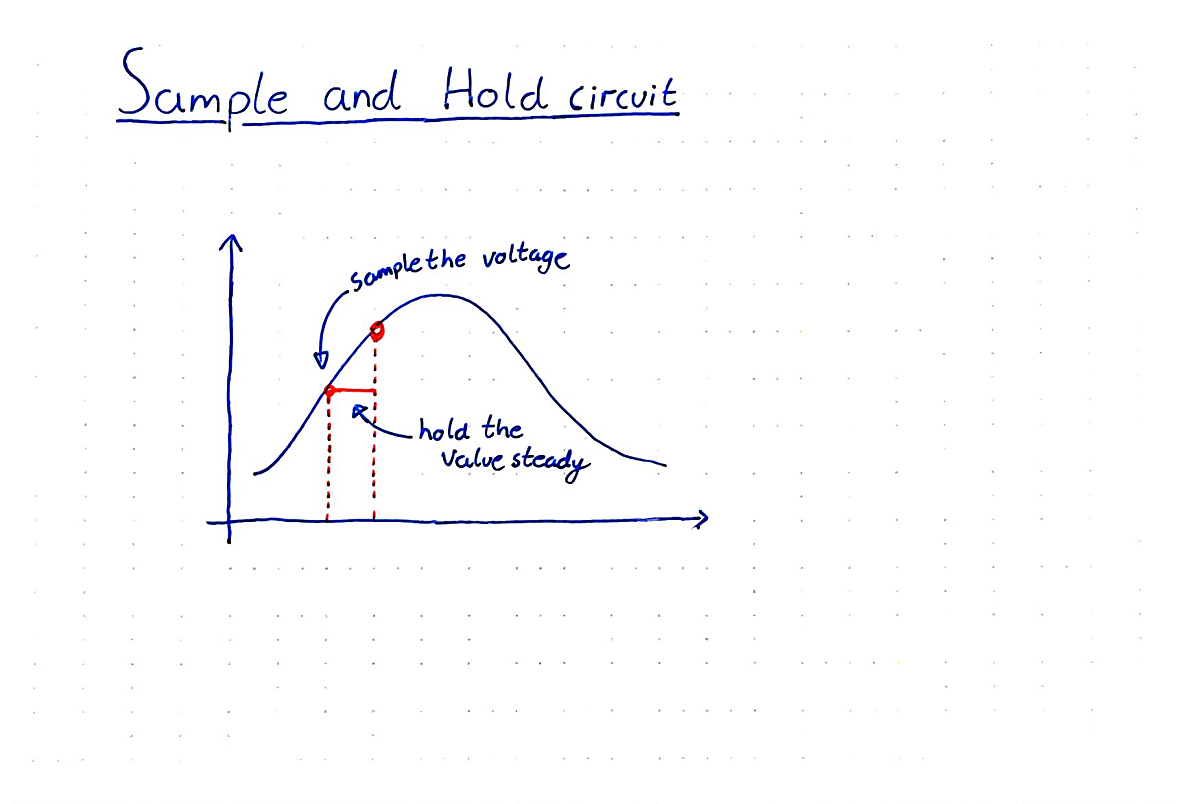 Sample and Hold circuit
sample the voltage
hold the
value steady